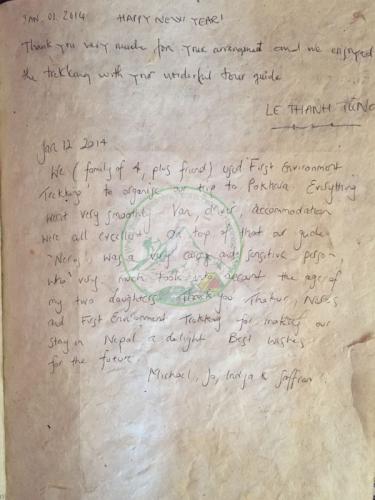 JAN, 01. 2014 HAPPY NEW YEAR!
Thank you very much for your arrangment and we enjoyed
the trekking with your wonderful tour guide
LE THANH TÙNG
Jan 12 2014
We (family of 4, plus friend) used 'First Environment
Trekking' to organise our trip to Pokhara. Everything
went very smoothly. Van, driver, accommodation
were all excellent. On top of that our guide
was a very caring and sensitive person,
who very much took into account the age of
my two daughters. Thank you Thakur,
and First Environment Trekking for making our
stay in Nepal a delight Best wishes
for the future
Michael, Jo, India & Saffron